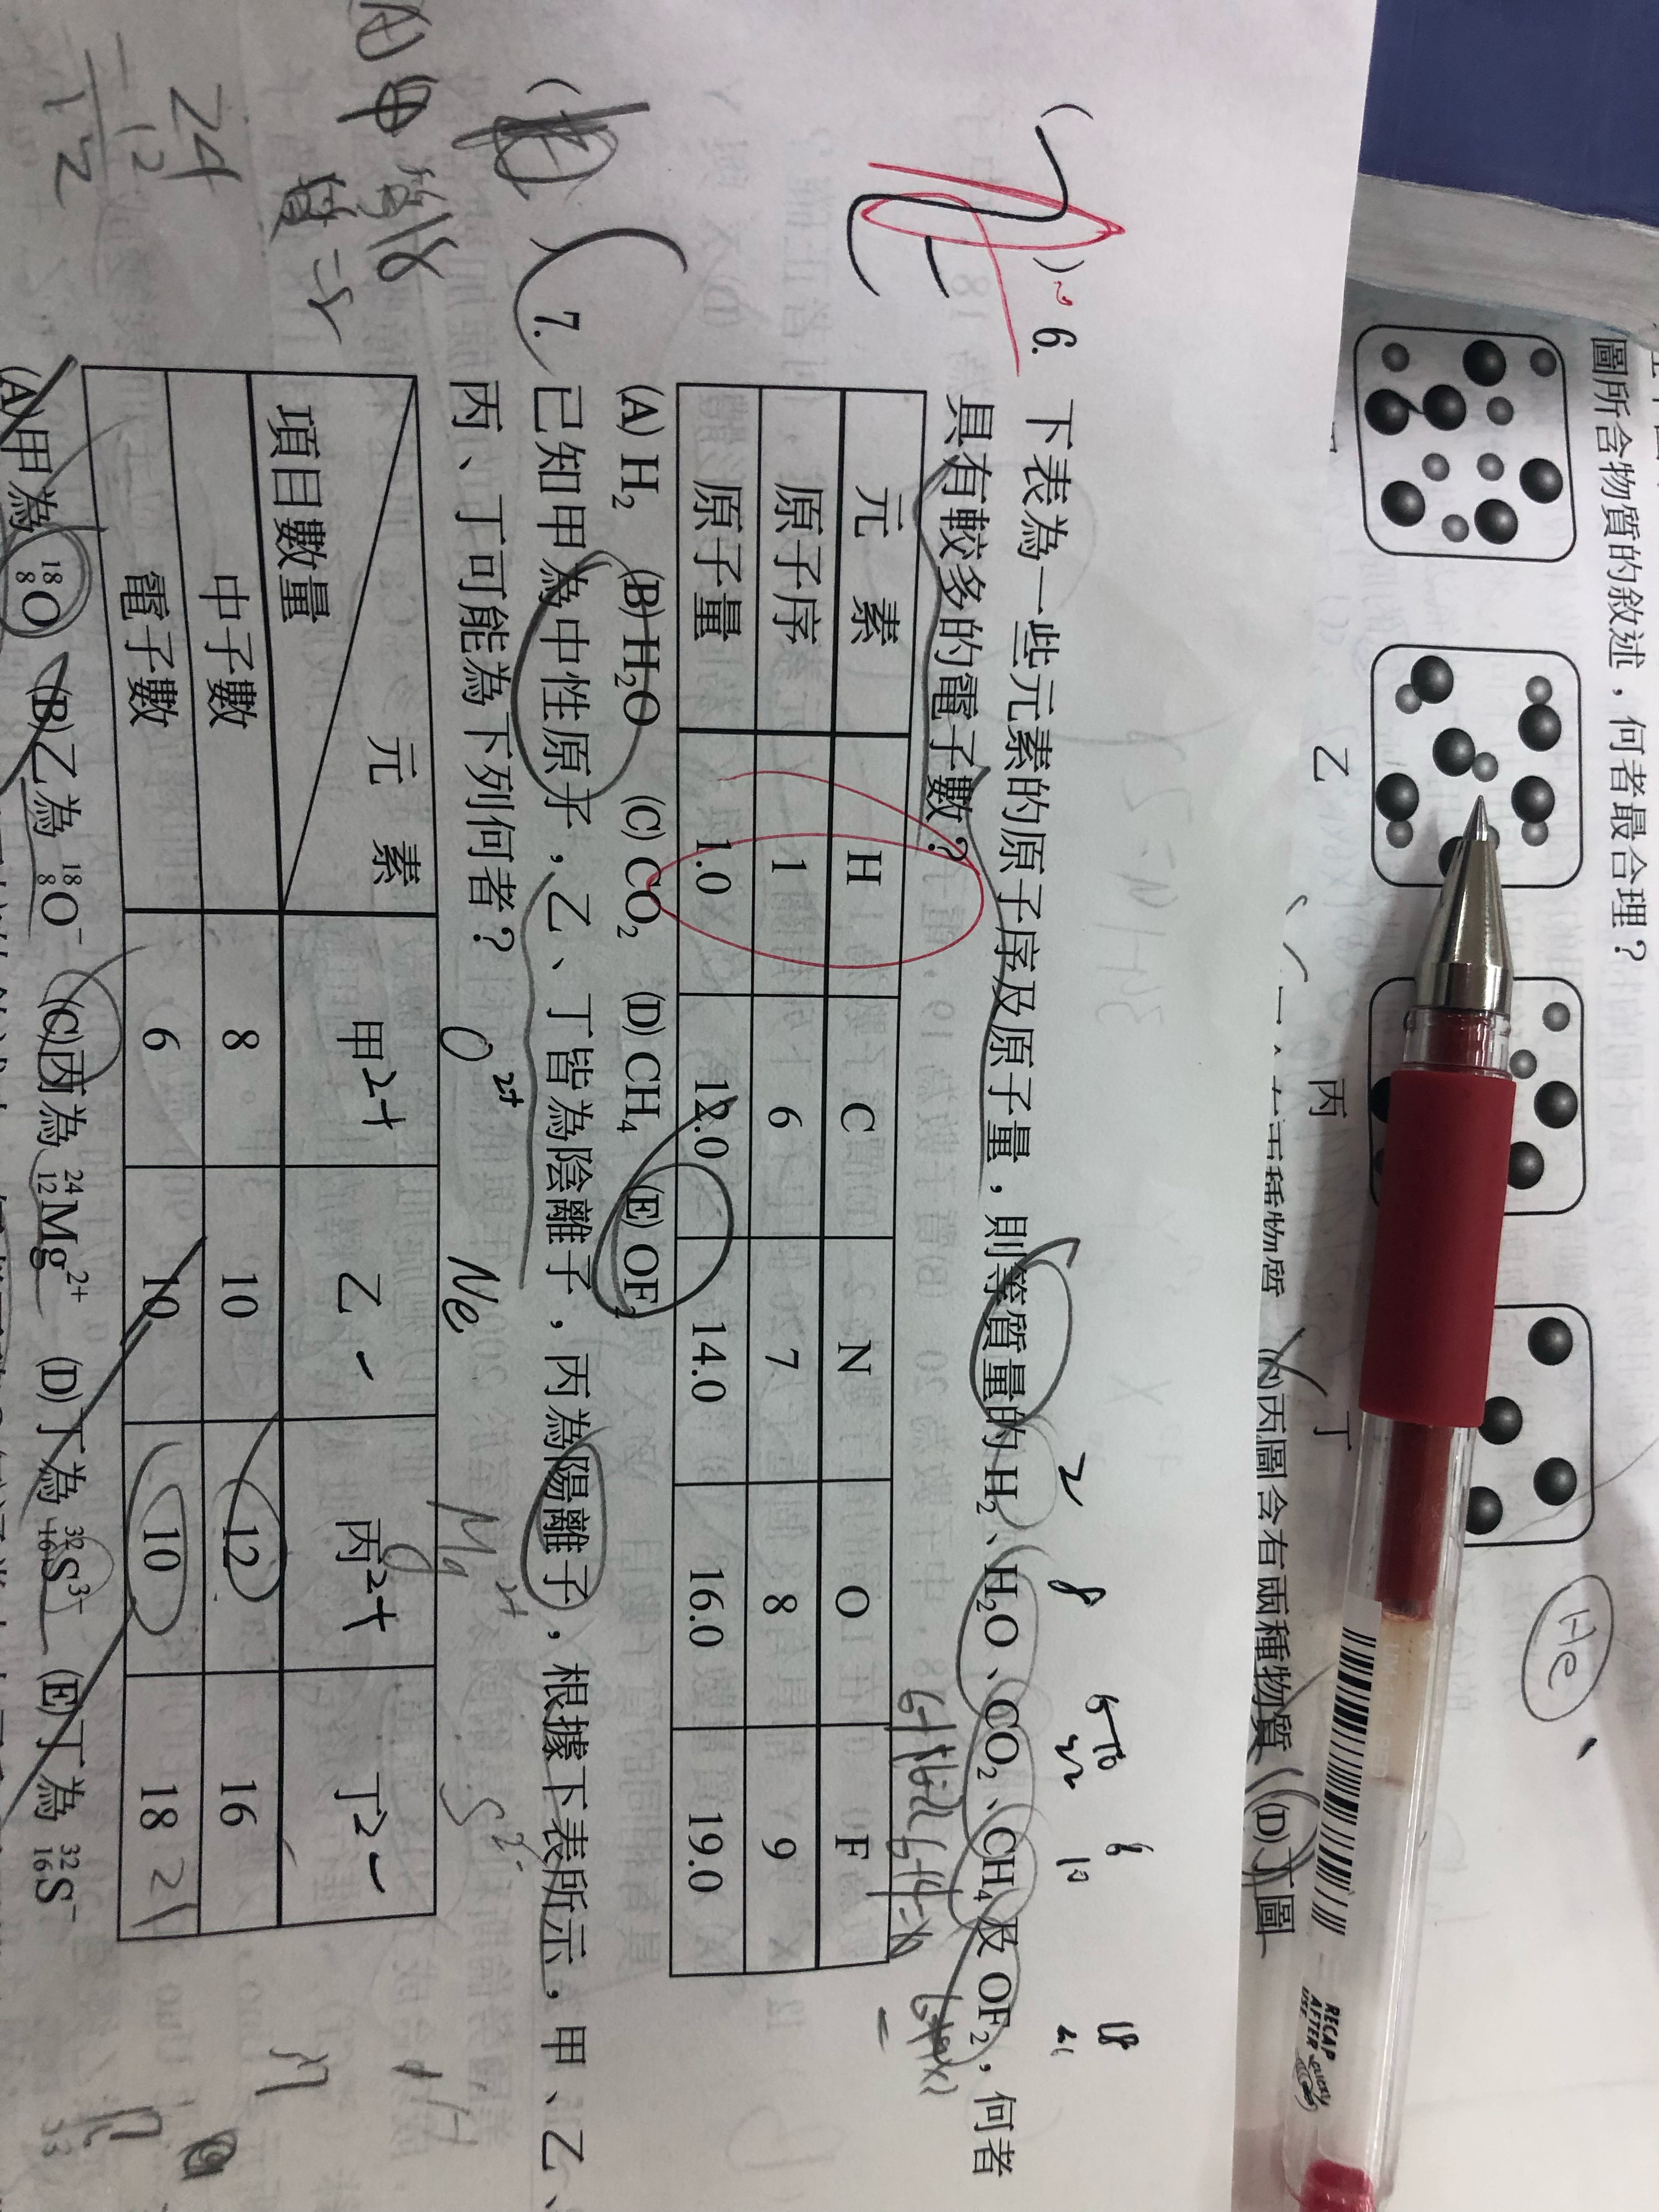 圖所含物質的敘述，何者最合理？
He
乙
丙
丁
丙圖含有兩種物質 (D)丁圖
6. 下表為一些元素的原子序及原子量，則等質量的 H₂、H₂O、CO₂、CH₄ 及 OF₂，何者
具有較多的電子數？
元 素 H C N O F
原子序 1 6 7 8 9
原子量 1.0 12.0 14.0 16.0 19.0
(A) H₂ (B) H₂O (C) CO₂ (D) CH₄ (E) OF₂
7. 已知甲為中性原子，乙、丁皆為陰離子，丙為陽離子，根據下表所示，甲、乙、
丙、丁可能為下列何者？
O²⁺ Ne Mg²⁺ S²⁻
元 素 甲2+ 乙- 丙2+ 丁2-
項目數量
中子數 8 10 12 16
電子數 6 10 10 18
(A)甲為 ¹⁸₈O (B)乙為 ¹⁸₈O⁻ (C)丙為 ²⁴₁₂Mg²⁺ (D)丁為 ³²₁₆S³⁻ (E)丁為 ³²₁₆S⁻
24
-12
12
RECAP
AFTER
USE